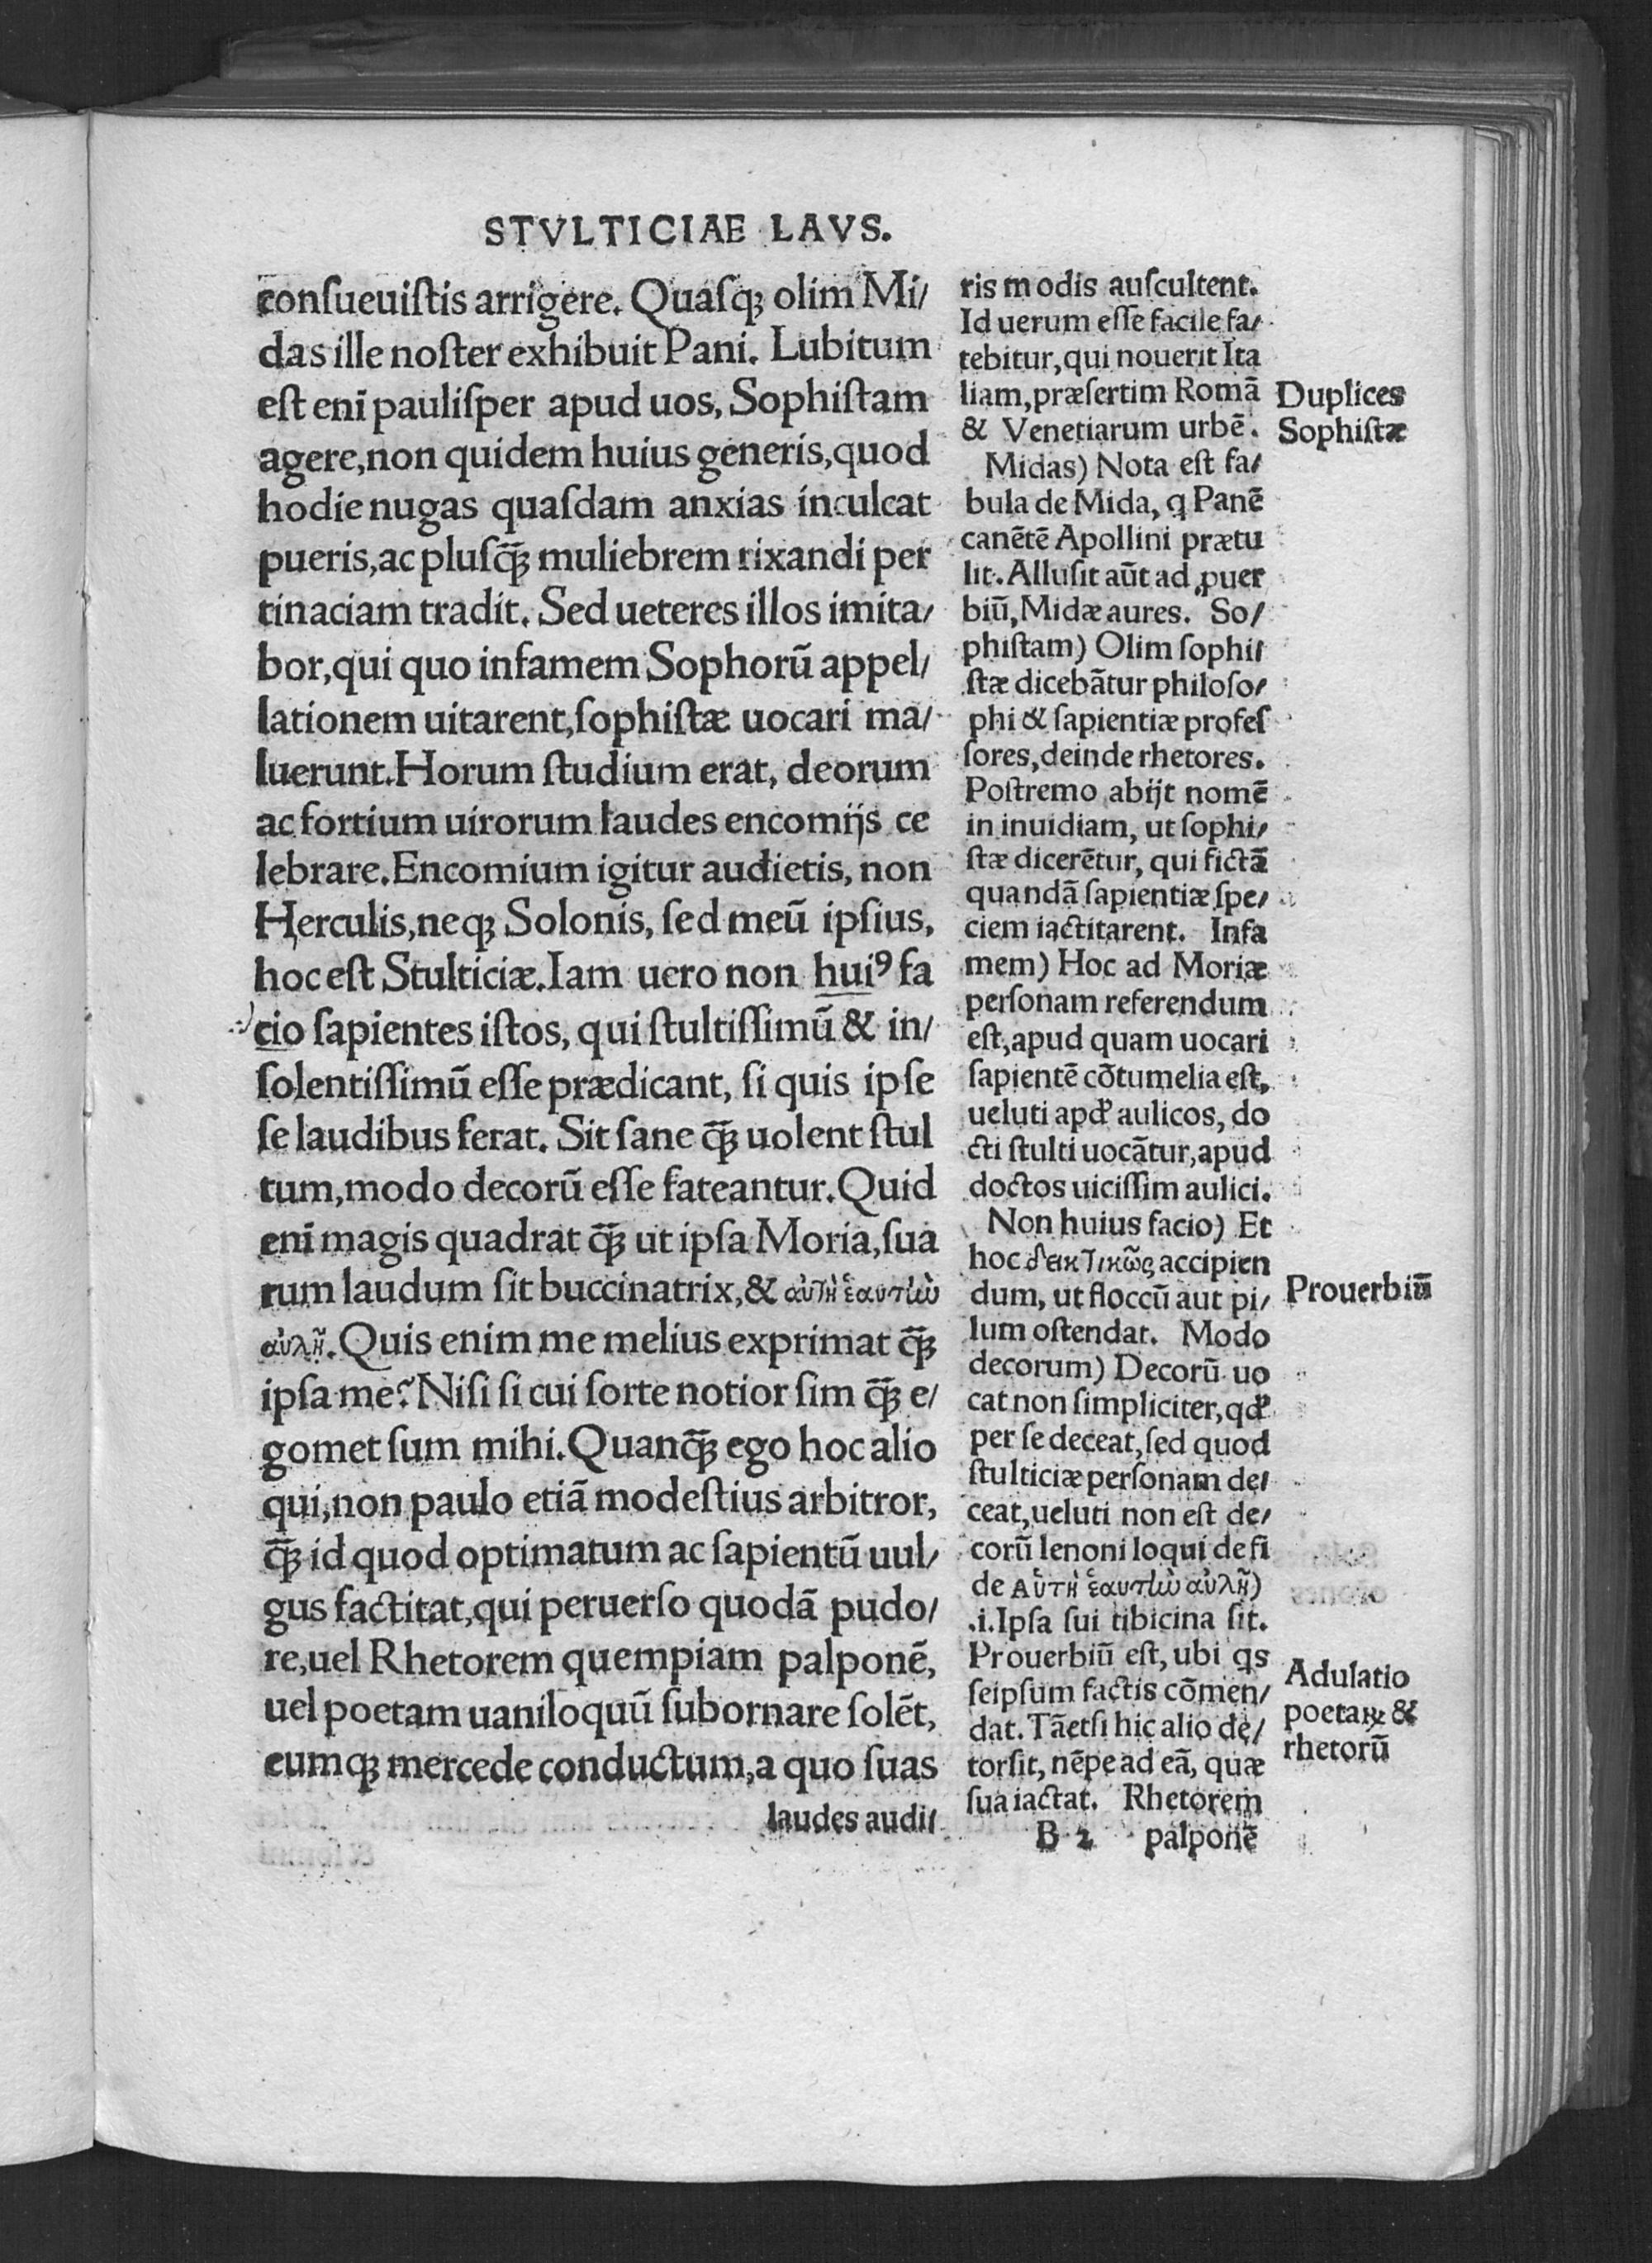 STVLTICIAE LAVS.
conſueuiſtis arrigere. Quaſqꝫ olim Mi/
das ille noſter exhibuit Pani. Lubitum
eſt enī pauliſper apud uos, Sophiſtam
agere,non quidem huius generis,quod
hodie nugas quaſdam anxias inculcat
pueris,ac pluſq̄ꝫ muliebrem rixandi per
tinaciam tradit. Sed ueteres illos imita/
bor,qui quo infamem Sophorū appel/
lationem uitarent,ſophiſtæ uocari ma/
luerunt.Horum ſtudium erat, deorum
ac fortium uirorum laudes encomijs ce
lebrare.Encomium igitur audietis, non
Herculis,neqꝫ Solonis, ſed meū ipſius,
hoc eſt Stulticiæ.Iam uero non huiꝰ fa
cio ſapientes iſtos, qui ſtultiſſimū & in/
ſolentiſſimū eſſe prædicant, ſi quis ipſe
ſe laudibus ferat. Sit ſane q̄ꝫ uolent ſtul
tum,modo decorū eſſe fateantur.Quid
enī magis quadrat q̄ꝫ ut ipſa Moria,ſua
rum laudum ſit buccinatrix,& αὐτὴ ἑαυτὼ
αὐλῇ.Quis enim me melius exprimat q̄ꝫ
ipſa me? Niſi ſi cui forte notior ſim q̄ꝫ e/
gomet ſum mihi.Quanq̄ꝫ ego hoc alio
qui,non paulo etiā modeſtius arbitror,
q̄ꝫ id quod optimatum ac ſapientū uul/
gus factitat,qui peruerſo quodā pudo/
re,uel Rhetorem quempiam palponē,
uel poetam uaniloquū ſubornare ſolēt,
eumqꝫ mercede conductum,a quo ſuas
laudes audi/
ris modis auſcultent.
Id uerum eſſe facile fa/
tebitur,qui nouerit Ita
liam,præſertim Romā
& Venetiarum urbē.
Midas) Nota eſt fa/
bula de Mida, ꝗ Panē
canētē Apollini prætu
lit. Alluſit aūt ad ꝓuer
biū, Midæ aures. So/
phiſtam) Olim ſophi/
ſtæ dicebātur philoſo/
phi & ſapientiæ profeſ
ſores, deinde rhetores.
Poſtremo abijt nomē
in inuidiam, ut ſophi/
ſtæ dicerētur, qui fictā
quandā ſapientiæ ſpe/
ciem iactitarent. Infa
mem) Hoc ad Moriæ
perſonam referendum
eſt,apud quam uocari
ſapientē cōtumelia eſt,
ueluti apđ aulicos, do
cti ſtulti uocātur,apud
doctos uiciſſim aulici.
Non huius facio) Et
hoc δεικτικῶς accipien
dum, ut floccū aut pi/
lum oſtendat. Modo
decorum) Decorū uo
cat non ſimpliciter, qđ
per ſe deceat,ſed quod
ſtulticiæ perſonam de/
ceat,ueluti non eſt de/
corū lenoni loqui de fi
de Αὐτὴ ἑαυτὼ αὐλῇ)
.i.Ipſa ſui tibicina ſit.
Prouerbiū eſt, ubi ꝗs
ſeipſum factis cōmen/
dat. Tāetſi hic alio de/
torſit, nēpe ad eā, quæ
ſua iactat. Rhetorem
B 2 palponē
Duplices
Sophiſtæ
Prouerbiū
Adulatio
poetaꝝ &
rhetorū